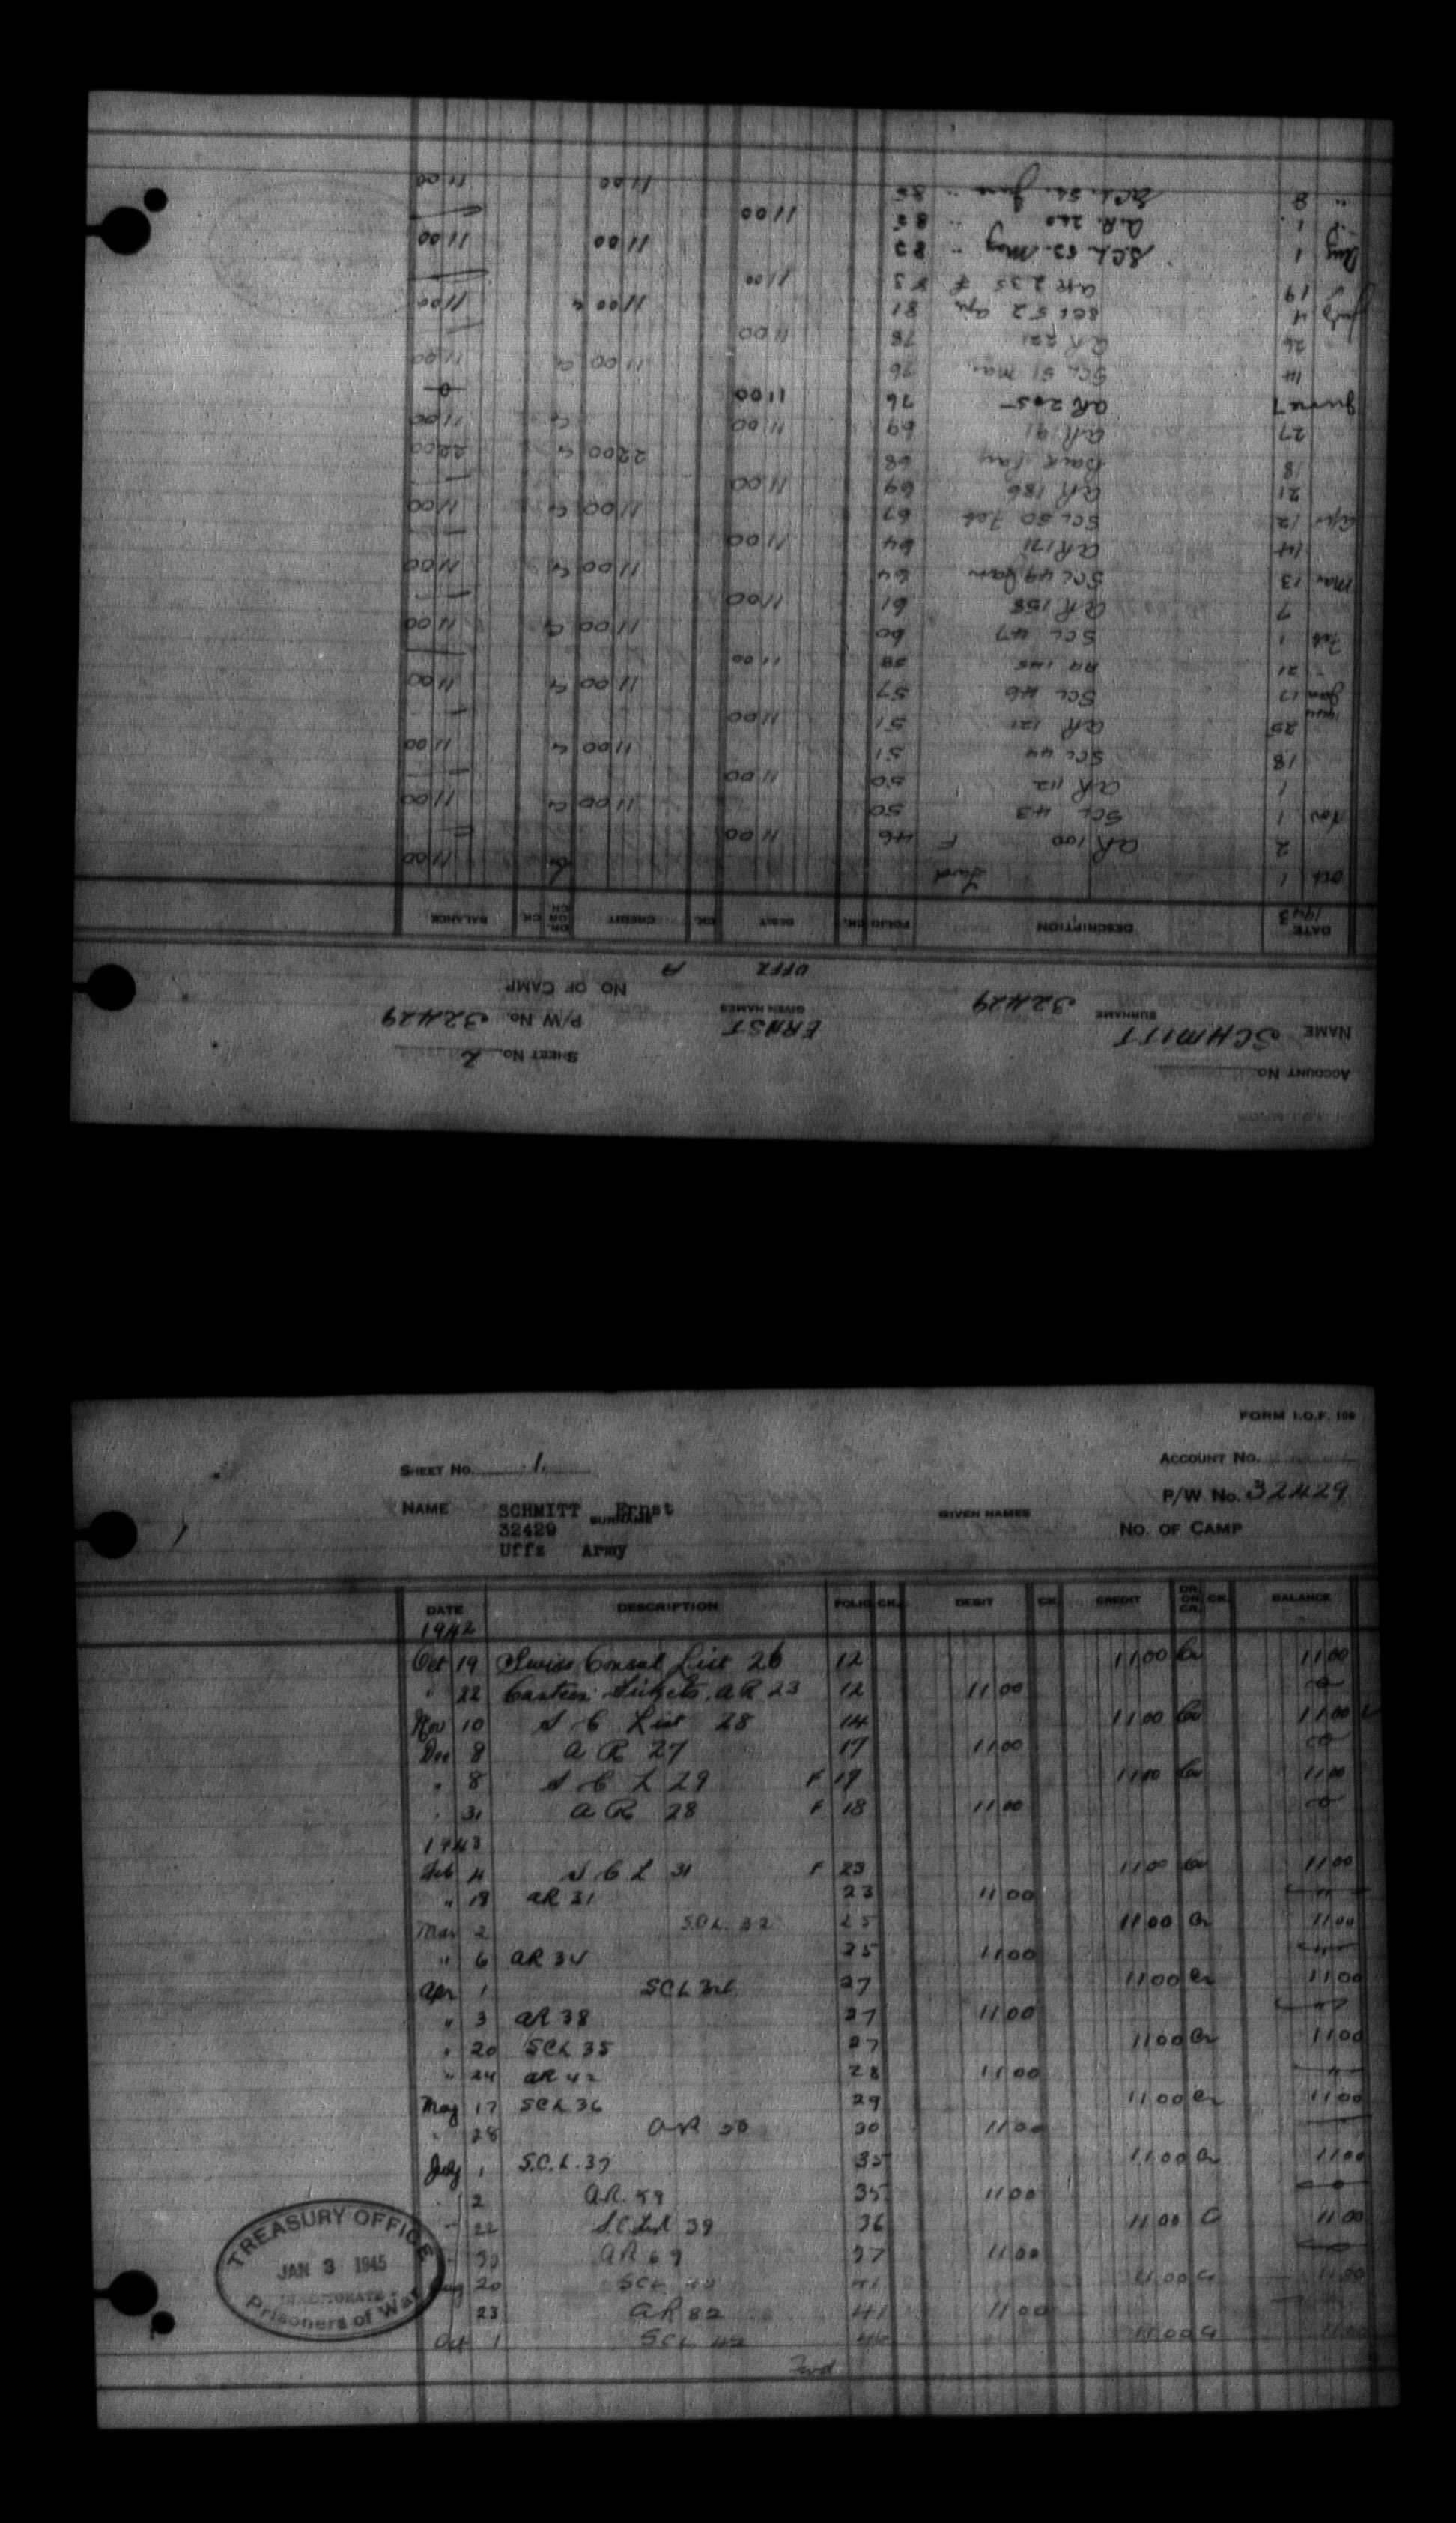 FORM I.O.F. 100
SHEET NO. 1.
ACCOUNT NO.
NAME SCHMITT Ernst
SURNAME
GIVEN NAMES
P/W No. 32429
32429
NO. OF CAMP
Uffz Army
DATE DESCRIPTION FOLIO CK. DEBIT CK. CREDIT DR. OR CR. CK. BALANCE
1942
Oct 19 Swiss Consul List 26 12 11 00 Cr 11 00
" 22 Canteen Tickets. AR 23 12 11 00 0
Nov 10 S C List 28 14 11 00 Cr 11 00
Dec 8 A R 27 17 11 00 0
" 8 S C L 29 F 19 11 00 Cr 11 00
" 31 A R 28 F 18 11 00 0
1943
Feb 4 S C L 31 F 23 11 00 Cr 11 00
" 19 AR 31 23 11 00
Mar 2 S.C.L. 32 25 11 00 Cr 11 00
" 6 AR 34 25 11 00
Apr 1 SCL 27 11 00 Cr 11 00
" 3 AR 38 27 11 00
" 20 SCL 35 27 11 00 Cr 11 00
" 24 AR 42 28 11 00
May 17 SCL 36 29 11 00 Cr 11 00
" 28 AR 50 30 11 00
July 1 S.C.L. 37 35 11 00 Cr 11 00
2 A.R. 59 35 11 00 0
" 22 S.C. List 39 36 11 00 C 11 00
30 AR 69 37 11 00 0
Aug 20 SCL 41 11 00 Cr 11 00
23 AR 82 41 11 00
Oct 1 SCL 42 46 11 00 Cr 11 00
Fwd
TREASURY OFFICE
JAN 3 1945
DIRECTORATE
Prisoners of War
ACCOUNT NO.
SHEET NO. 2
NAME SCHMITT ERNST
P/W No. 32429
SURNAME 32429
GIVEN NAMES
NO OF CAMP
UFFZ A
DATE DESCRIPTION FOLIO CK. DEBIT CK. CREDIT DR. OR CR. CK. BALANCE
1943
Oct 1 Fwd 11 00
2 AR 100 F 46 11 00
Nov 1 SCL 43 50 11 00 11 00
1 AR 112 50 11 00
18 SCL 44 51 11 00 11 00
25 AR 121 51 11 00
1944
Jan 17 SCL 46 57 11 00 11 00
21 AR 145 58 11 00
Feb 1 SCL 47 60 11 00 11 00
7 AR 158 61 11 00
Mar 13 SCL 49 Jan 64 11 00 11 00
14 AR 171 64 11 00
Apr 12 SCL 50 Feb 67 11 00 11 00
21 AR 186 69 11 00
18 Back Pay 68 22 00 22 00
27 AR 191 69 11 00 11 00
June 7 AR 205 76 11 00 0
14 SCL 51 Mar. 76 11 00 11 00
26 AR 221 78 11 00
July 4 SCL 52 Apr 81 11 00 11 00
19 AR 235 F 83 11 00
Aug 1 SCL 53 May " 87 11 00 11 00
" 1 A.R. 260 " 11 00
" 8 SCL. 54. June " 88 11 00 11 00